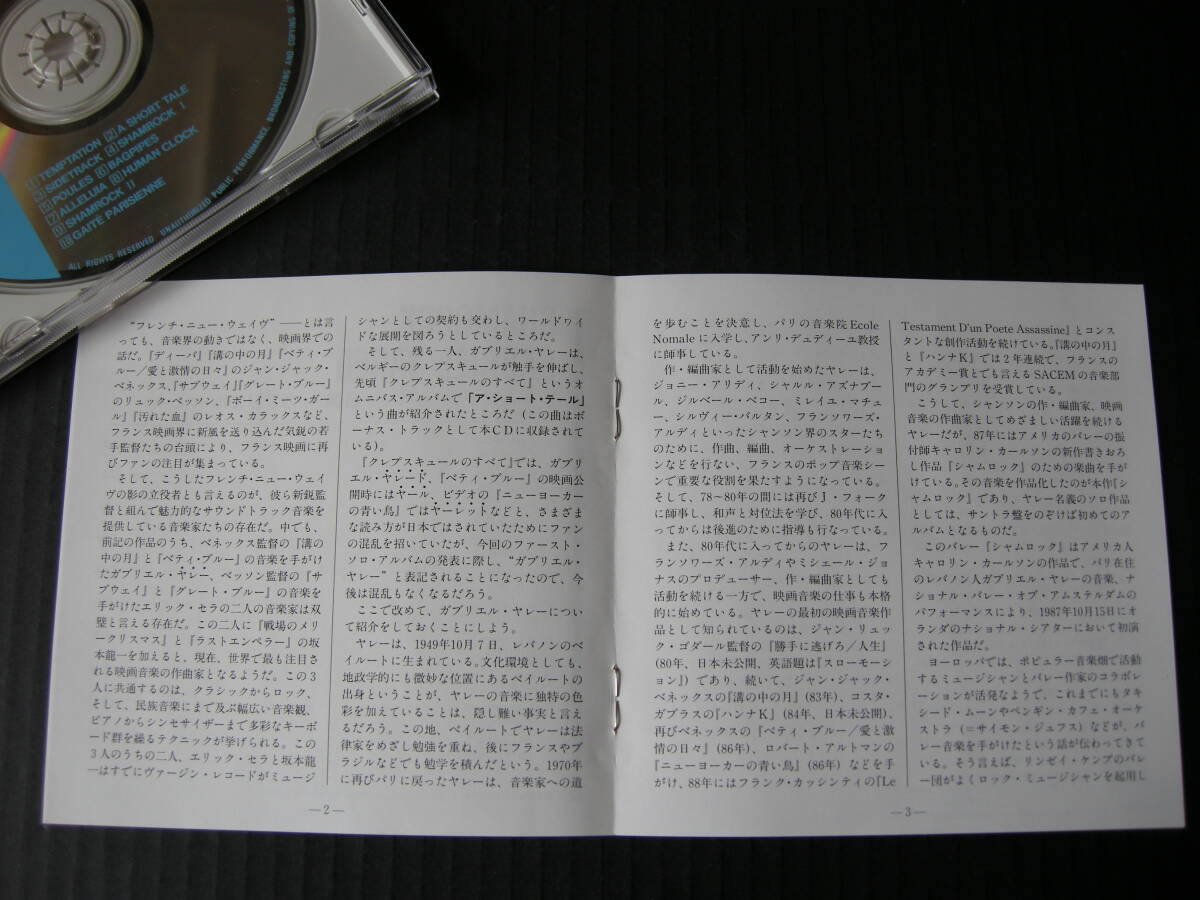 1 TEMPTATION 2 A SHORT TALE
3 SIDETRACK 4 SHAMROCK I
5 POULES 6 BAGPIPES
7 ALLELUIA 8 HUMAN CLOCK
9 SHAMROCK II
10 GAITÉ PARISIENNE
ALL RIGHTS RESERVED. UNAUTHORIZED PUBLIC PERFORMANCE, BROADCASTING AND COPYING OF
“フレンチ・ニュー・ウェイヴ”——とは言
っても、音楽界の動きではなく、映画界での
話だ。『ディーバ』『溝の中の月』『ベティ・ブ
ルー／愛と激情の日々』のジャン・ジャック・
ベネックス、『サブウェイ』『グレート・ブルー』
のリュック・ベッソン、『ボーイ・ミーツ・ガー
ル』『汚れた血』のレオス・カラックスなど、
フランス映画界に新風を送り込んだ気鋭の若
手監督たちの台頭により、フランス映画に再
びファンの注目が集まっている。
そして、こうしたフレンチ・ニュー・ウェイ
ヴの影の立役者とも言えるのが、彼ら新鋭監
督と組んで魅力的なサウンドトラック音楽を
提供している音楽家たちの存在だ。中でも、
前記の作品のうち、ベネックス監督の『溝の
中の月』と『ベティ・ブルー』の音楽を手がけ
たガブリエル・ヤレー、ベッソン監督の『サ
ブウェイ』と『グレート・ブルー』の音楽を
手がけたエリック・セラの二人の音楽家は双
璧と言える存在だ。この二人に『戦場のメリ
ークリスマス』と『ラストエンペラー』の坂
本龍一を加えると、現在、世界で最も注目さ
れる映画音楽の作曲家となるようだ。この3
人に共通するのは、クラシックからロック、
そして、民族音楽にまで及ぶ幅広い音楽観、
ピアノからシンセサイザーまで多彩なキーボ
ード群を操るテクニックが挙げられる。この
3人のうちの二人、エリック・セラと坂本龍
一はすでにヴァージン・レコードがミュージ
—2—
シャンとしての契約も交わし、ワールドワイ
ドな展開を図ろうとしているところだ。
そして、残る一人、ガブリエル・ヤレーは、
ベルギーのクレプスキュールが触手を伸ばし、
先頃『クレプスキュールのすべて』というオ
ムニバス・アルバムで「ア・ショート・テール」
という曲が紹介されたところだ（この曲はボ
ーナス・トラックとして本CDに収録されて
いる）。
『クレプスキュールのすべて』では、ガブリ
エル・ヤレード、『ベティ・ブルー』の映画公
開時にはヤール、ビデオの『ニューヨーカー
の青い鳥』ではヤーレットなどと、さまざま
な読み方が日本ではされていたためにファン
の混乱を招いていたが、今回のファースト・
ソロ・アルバムの発表に際し、“ガブリエル・
ヤレー”と表記されることになったので、今
後は混乱もなくなるだろう。
ここで改めて、ガブリエル・ヤレーについ
て紹介をしておくことにしよう。
ヤレーは、1949年10月7日、レバノンのベ
イルートに生まれている。文化環境としても、
地政学的にも微妙な位置にあるベイルートの
出身ということが、ヤレーの音楽に独特の色
彩を加えていることは、隠し難い事実と言え
るだろう。この地、ベイルートでヤレーは法
律家をめざし勉強を重ね、後にフランスやブ
ラジルなどでも勉学を積んだという。1970年
に再びパリに戻ったヤレーは、音楽家への道
を歩むことを決意し、パリの音楽院Ecole
Nomaleに入学し、アンリ・デュディーユ教授
に師事している。
作・編曲家として活動を始めたヤレーは、
ジョニー・アリディ、シャルル・アズナブー
ル、ジルベール・ベコー、ミレイユ・マチュ
ー、シルヴィー・バルタン、フランソワーズ・
アルディといったシャンソン界のスターたち
のために、作曲、編曲、オーケストレーショ
ンなどを行ない、フランスのポップ音楽シー
ンで重要な役割を果たすようになっている。
そして、78〜80年の間には再びJ・フォーク
に師事し、和声と対位法を学び、80年代に入
ってからは後進のために指導も行なっている。
また、80年代に入ってからのヤレーは、フ
ランソワーズ・アルディやミシェール・ジョ
ナスのプロデューサー、作・編曲家としても
活動を続ける一方で、映画音楽の仕事も本格
的に始めている。ヤレーの最初の映画音楽作
品として知られているのは、ジャン・リュッ
ク・ゴダール監督の『勝手に逃げろ／人生』
（80年、日本未公開、英語題は『スローモーシ
ョン』）であり、続いて、ジャン・ジャック・
ベネックスの『溝の中の月』（83年）、コスタ・
ガブラスの『ハンナK』（84年、日本未公開）、
再びベネックスの『ベティ・ブルー／愛と激
情の日々』（86年）、ロバート・アルトマンの
『ニューヨーカーの青い鳥』（86年）などを手
がけ、88年にはフランク・カッシンティの『Le
Testament D'un Poete Assassine』とコンス
タントな創作活動を続けている。『溝の中の月』
と『ハンナK』では2年連続で、フランスの
アカデミー賞とでも言えるSACEMの音楽部
門のグランプリを受賞している。
こうして、シャンソンの作・編曲家、映画
音楽の作曲家としてめざましい活躍を続ける
ヤレーだが、87年にはアメリカのバレーの振
付師キャロリン・カールソンの新作書きおろ
し作品『シャムロック』のための楽曲を手が
けている。その音楽を作品化したのが本作『シ
ャムロック』であり、ヤレー名義のソロ作品
としては、サントラ盤をのぞけば初めてのア
ルバムとなるものだ。
このバレー『シャムロック』はアメリカ人
キャロリン・カールソンの作品で、パリ在住
のレバノン人ガブリエル・ヤレーの音楽、ナ
ショナル・バレー・オブ・アムステルダムの
パフォーマンスにより、1987年10月15日にオ
ランダのナショナル・シアターにおいて初演
された作品だ。
ヨーロッパでは、ポピュラー音楽畑で活動
するミュージシャンとバレー作家のコラボレ
ーションが活発なようで、これまでにもタキ
シード・ムーンやペンギン・カフェ・オーケ
ストラ（＝サイモン・ジェフス）などが、バ
レー音楽を手がけたという話が伝わってきて
いる。そう言えば、リンゼイ・ケンプのバレ
ー団がよくロック・ミュージシャンを起用し
—3—